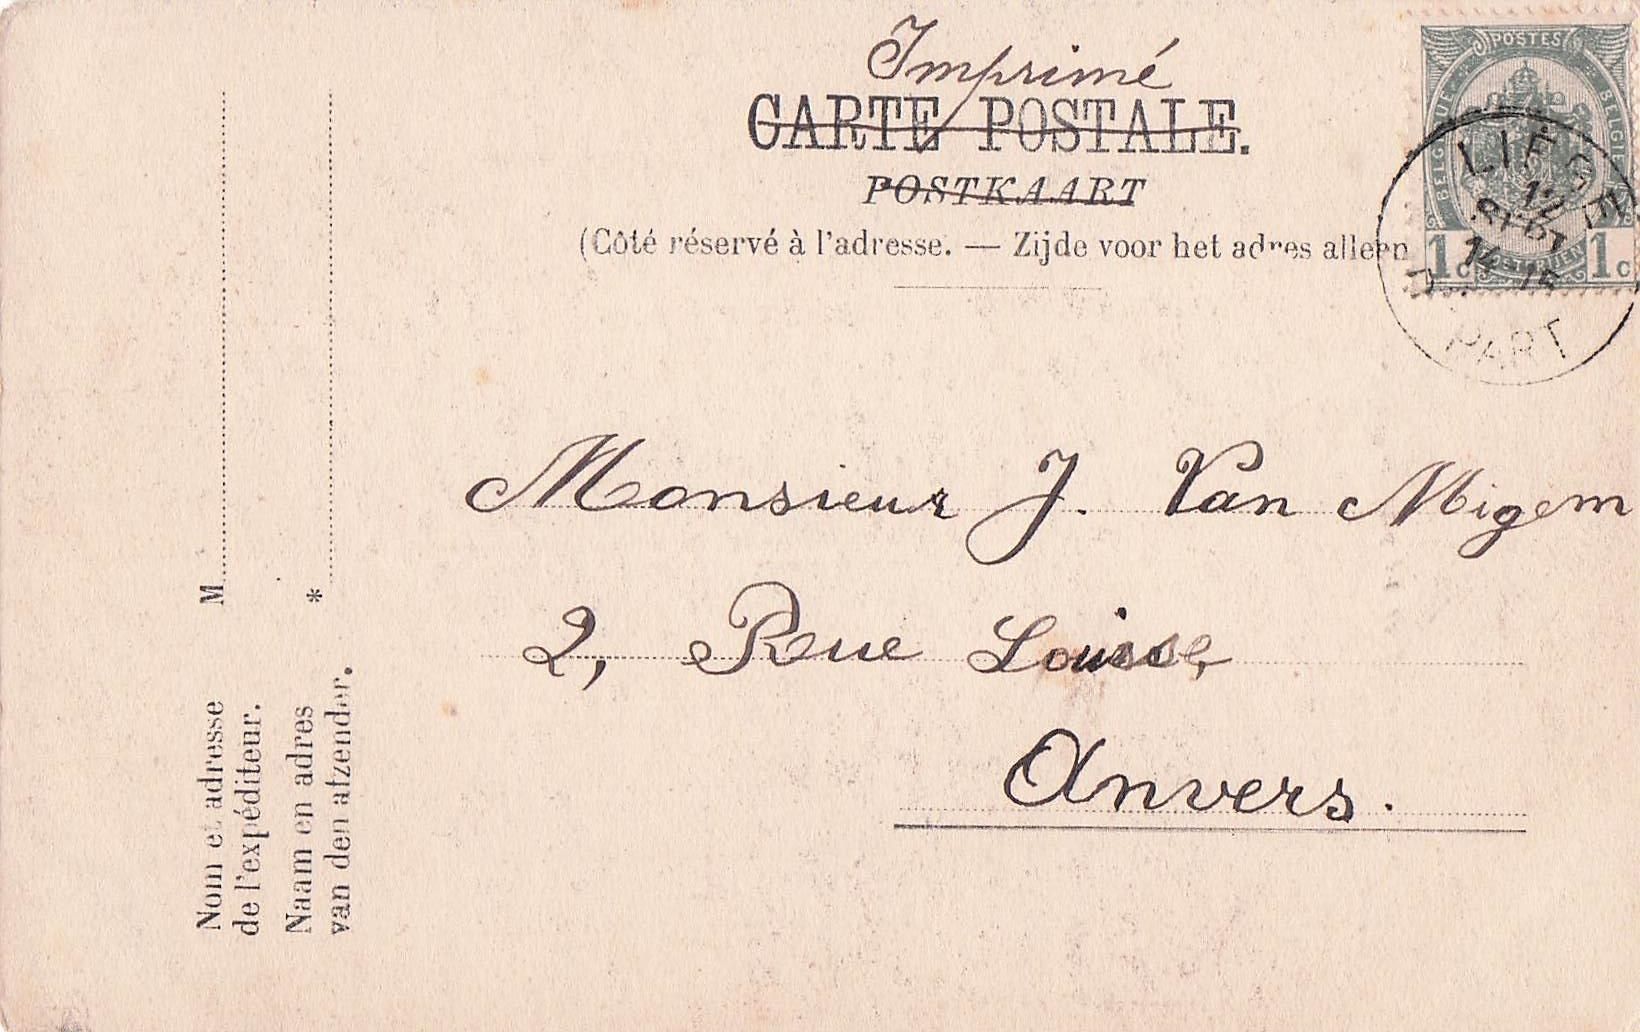 Imprimé
CARTE POSTALE.
POSTKAART
(Côté réservé à l'adresse. — Zijde voor het adres alleen
POSTES
BELGIE
1c 1c
LIEGE
12
SEPT
14-15
PART
Monsieur J. Van Migem
2, Rue Louise,
Anvers.
M
*
Nom et adresse
de l'expéditeur.
Naam en adres
van den afzender.